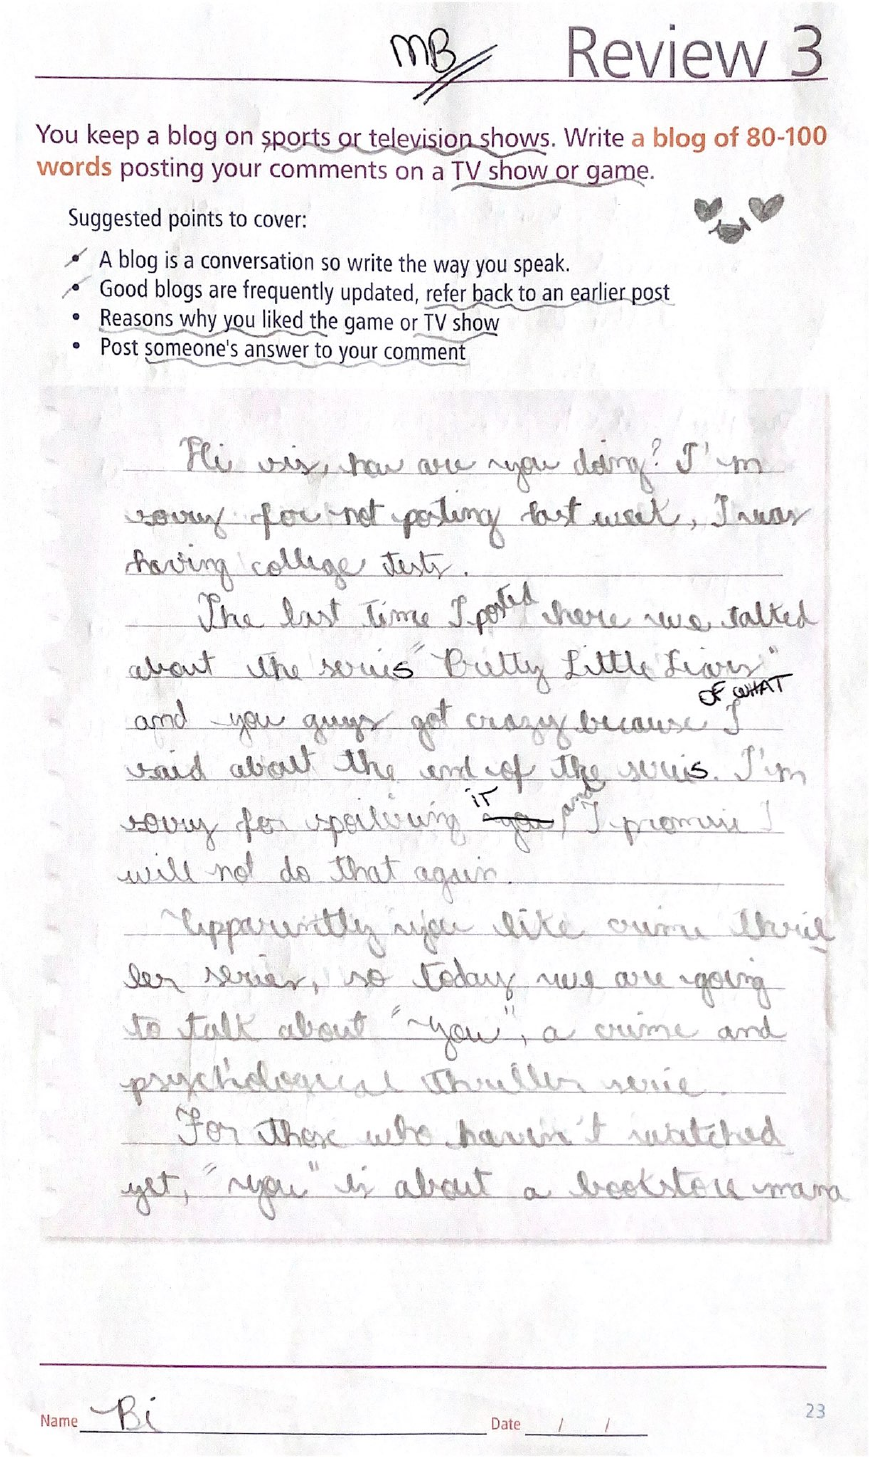 MB
Review 3
You keep a blog on sports or television shows. Write a blog of 80-100
words posting your comments on a TV show or game.
Suggested points to cover:
• A blog is a conversation so write the way you speak.
• Good blogs are frequently updated, refer back to an earlier post
• Reasons why you liked the game or TV show
• Post someone's answer to your comment
Hi sis, how are you doing? I'm
sorry for not posting last week, I was
having college tests.
The last time I posted here we talked
about the series "Pretty Little Liars"
OF WHAT
and you guys got crazy because I
said about the end of the series. I'm
it and
sorry for spoilering you, I promise I
will not do that again.
Apparently you like crime thril
ler series, so today we are going
to talk about "you", a crime and
psychological thriller serie.
For those who haven't watched
yet, "you" is about a bookstore mana
Name Bi
Date / /
23